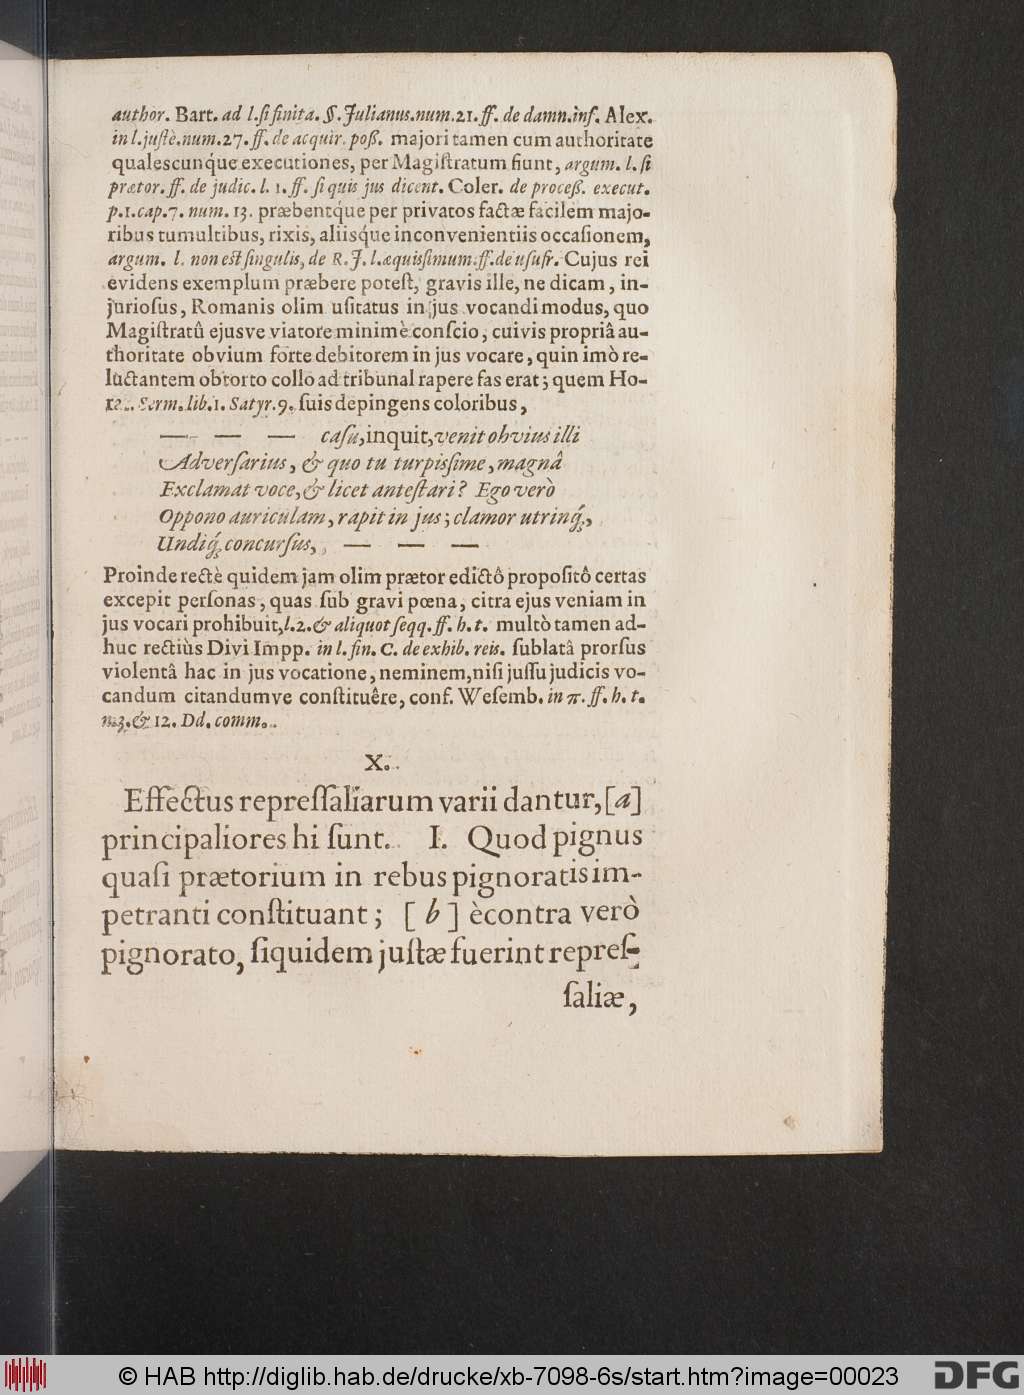 author. Bart. ad l. ſi finita. §. Julianus. num. 21. ff. de damn. inf. Alex.
in l. juſtè. num. 27. ff. de acquir. poß. majori tamen cum authoritate
qualescunque executiones, per Magiſtratum fiunt, argum. l. ſi
prætor. ff. de judic. l. 1. ff. ſi quis jus dicent. Coler. de proceß. execut.
p. 1. cap. 7. num. 13. præbentq́ue per privatos factæ facilem majo-
ribus tumultibus, rixis, aliisq́ue inconvenientiis occaſionem,
argum. l. non eſt ſingulis, de R. J. l. æquiſsimum. ff. de uſufr. Cujus rei
evidens exemplum præbere poteſt, gravis ille, ne dicam, in-
juriofus, Romanis olim uſitatus in jus vocandi modus, quo
Magiſtratû ejusve viatore minimè conſcio, cuivis propriâ au-
thoritate obvium forte debitorem in jus vocare, quin imò re-
luctantem obtorto collo ad tribunal rapere fas erat; quem Ho-
rat. Serm. lib. 1. Satyr. 9. ſuis depingens coloribus,
— — — caſu, inquit, venit obvius illi
Adverſarius, & quo tu turpiſsime, magnâ
Exclamat voce, & licet anteſtari? Ego verò
Oppono auriculam, rapit in jus; clamor utrinq́;,
Undiq́; concurſus, — — —
Proinde rectè quidem jam olim prætor edictô propoſitô certas
excepit perſonas, quas ſub gravi pœna, citra ejus veniam in
jus vocari prohibuit, l. 2. & aliquot ſeqq. ff. h. t. multò tamen ad-
huc rectiùs Divi Impp. in l. fin. C. de exhib. reis. ſublatâ prorſus
violentâ hac in jus vocatione, neminem, niſi juſſu judicis vo-
candum citandumve conſtituêre, conf. Weſemb. in π. ff. h. t.
n. 3. & 12. Dd. comm.
X.
Effectus repreſſaliarum varii dantur, [a]
principaliores hi ſunt. I. Quod pignus
quaſi prætorium in rebus pignoratis im-
petranti conſtituant; [b] ècontra verò
pignorato, ſiquidem juſtæ fuerint repreſ-
ſaliæ,
© HAB http://diglib.hab.de/drucke/xb-7098-6s/start.htm?image=00023
DFG